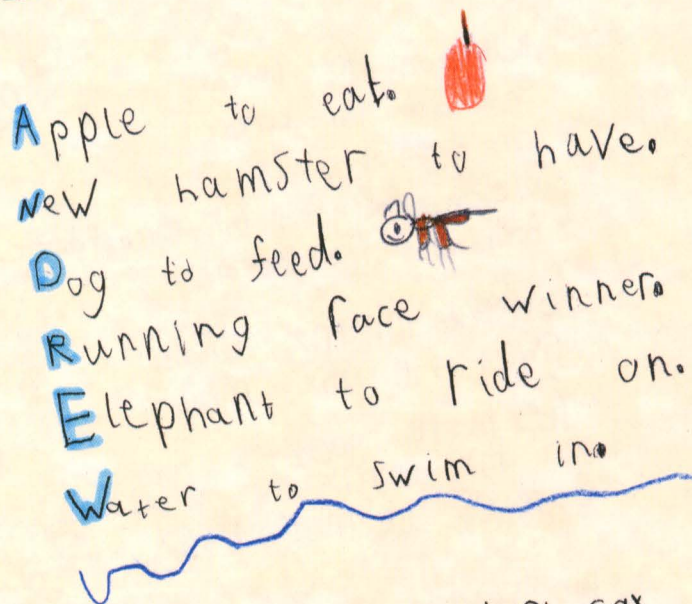 Apple to eat.
New hamster to have.
Dog to feed.
Running race winner.
Elephant to ride on.
Water to swim in.